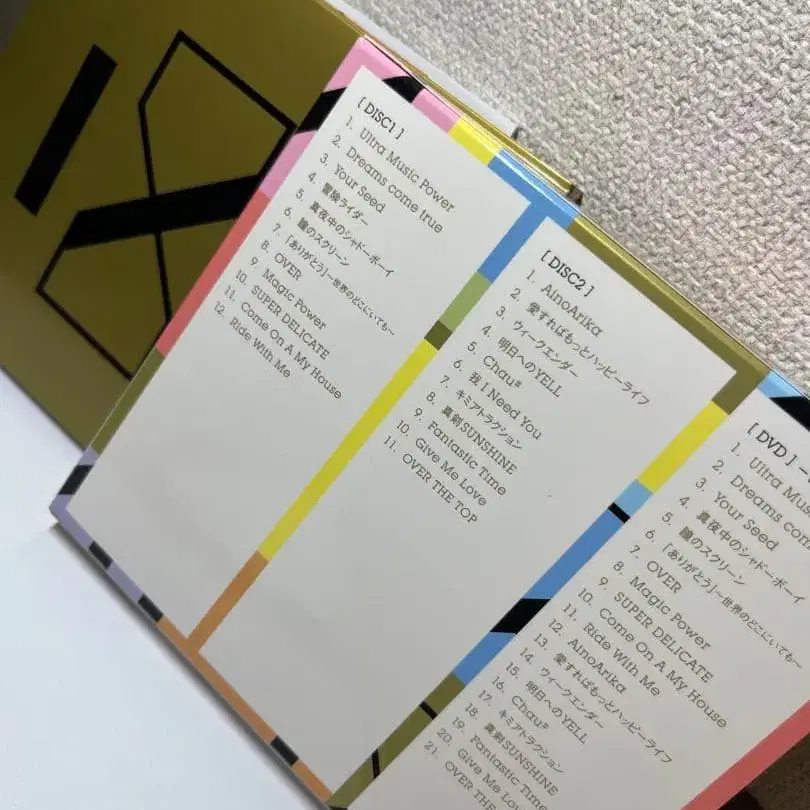 [ DISC1 ]
1. Ultra Music Power
2. Dreams come true
3. Your Seed
4. 冒険ライダー
5. 真夜中のシャドーボーイ
6. 瞳のスクリーン
7. 「ありがとう」〜世界のどこにいても〜
8. OVER
9. Magic Power
10. SUPER DELICATE
11. Come On A My House
12. Ride With Me
[ DISC2 ]
1. AinoArika
2. 愛すればもっとハッピーライフ
3. ウィークエンダー
4. 明日へのYELL
5. Chau#
6. 我 I Need You
7. キミアトラクション
8. 真剣SUNSHINE
9. Fantastic Time
10. Give Me Love
11. OVER THE TOP
[ DVD ]
1. Ultra Mus
2. Dreams com
3. Your Seed
4. 真夜中のシャドーボーイ
5. 瞳のスクリーン
6. 「ありがとう」〜世界のどこにいても〜
7. OVER
8. Magic Power
9. SUPER DELICATE
10. Come On A My House
11. Ride With Me
12. AinoArika
13. 愛すればもっとハッピーライフ
14. ウィークエンダー
15. 明日へのYELL
16. Chau#
17. キミアトラクション
18. 真剣SUNSHINE
19. Fantastic Time
20. Give Me Love
21. OVER THE